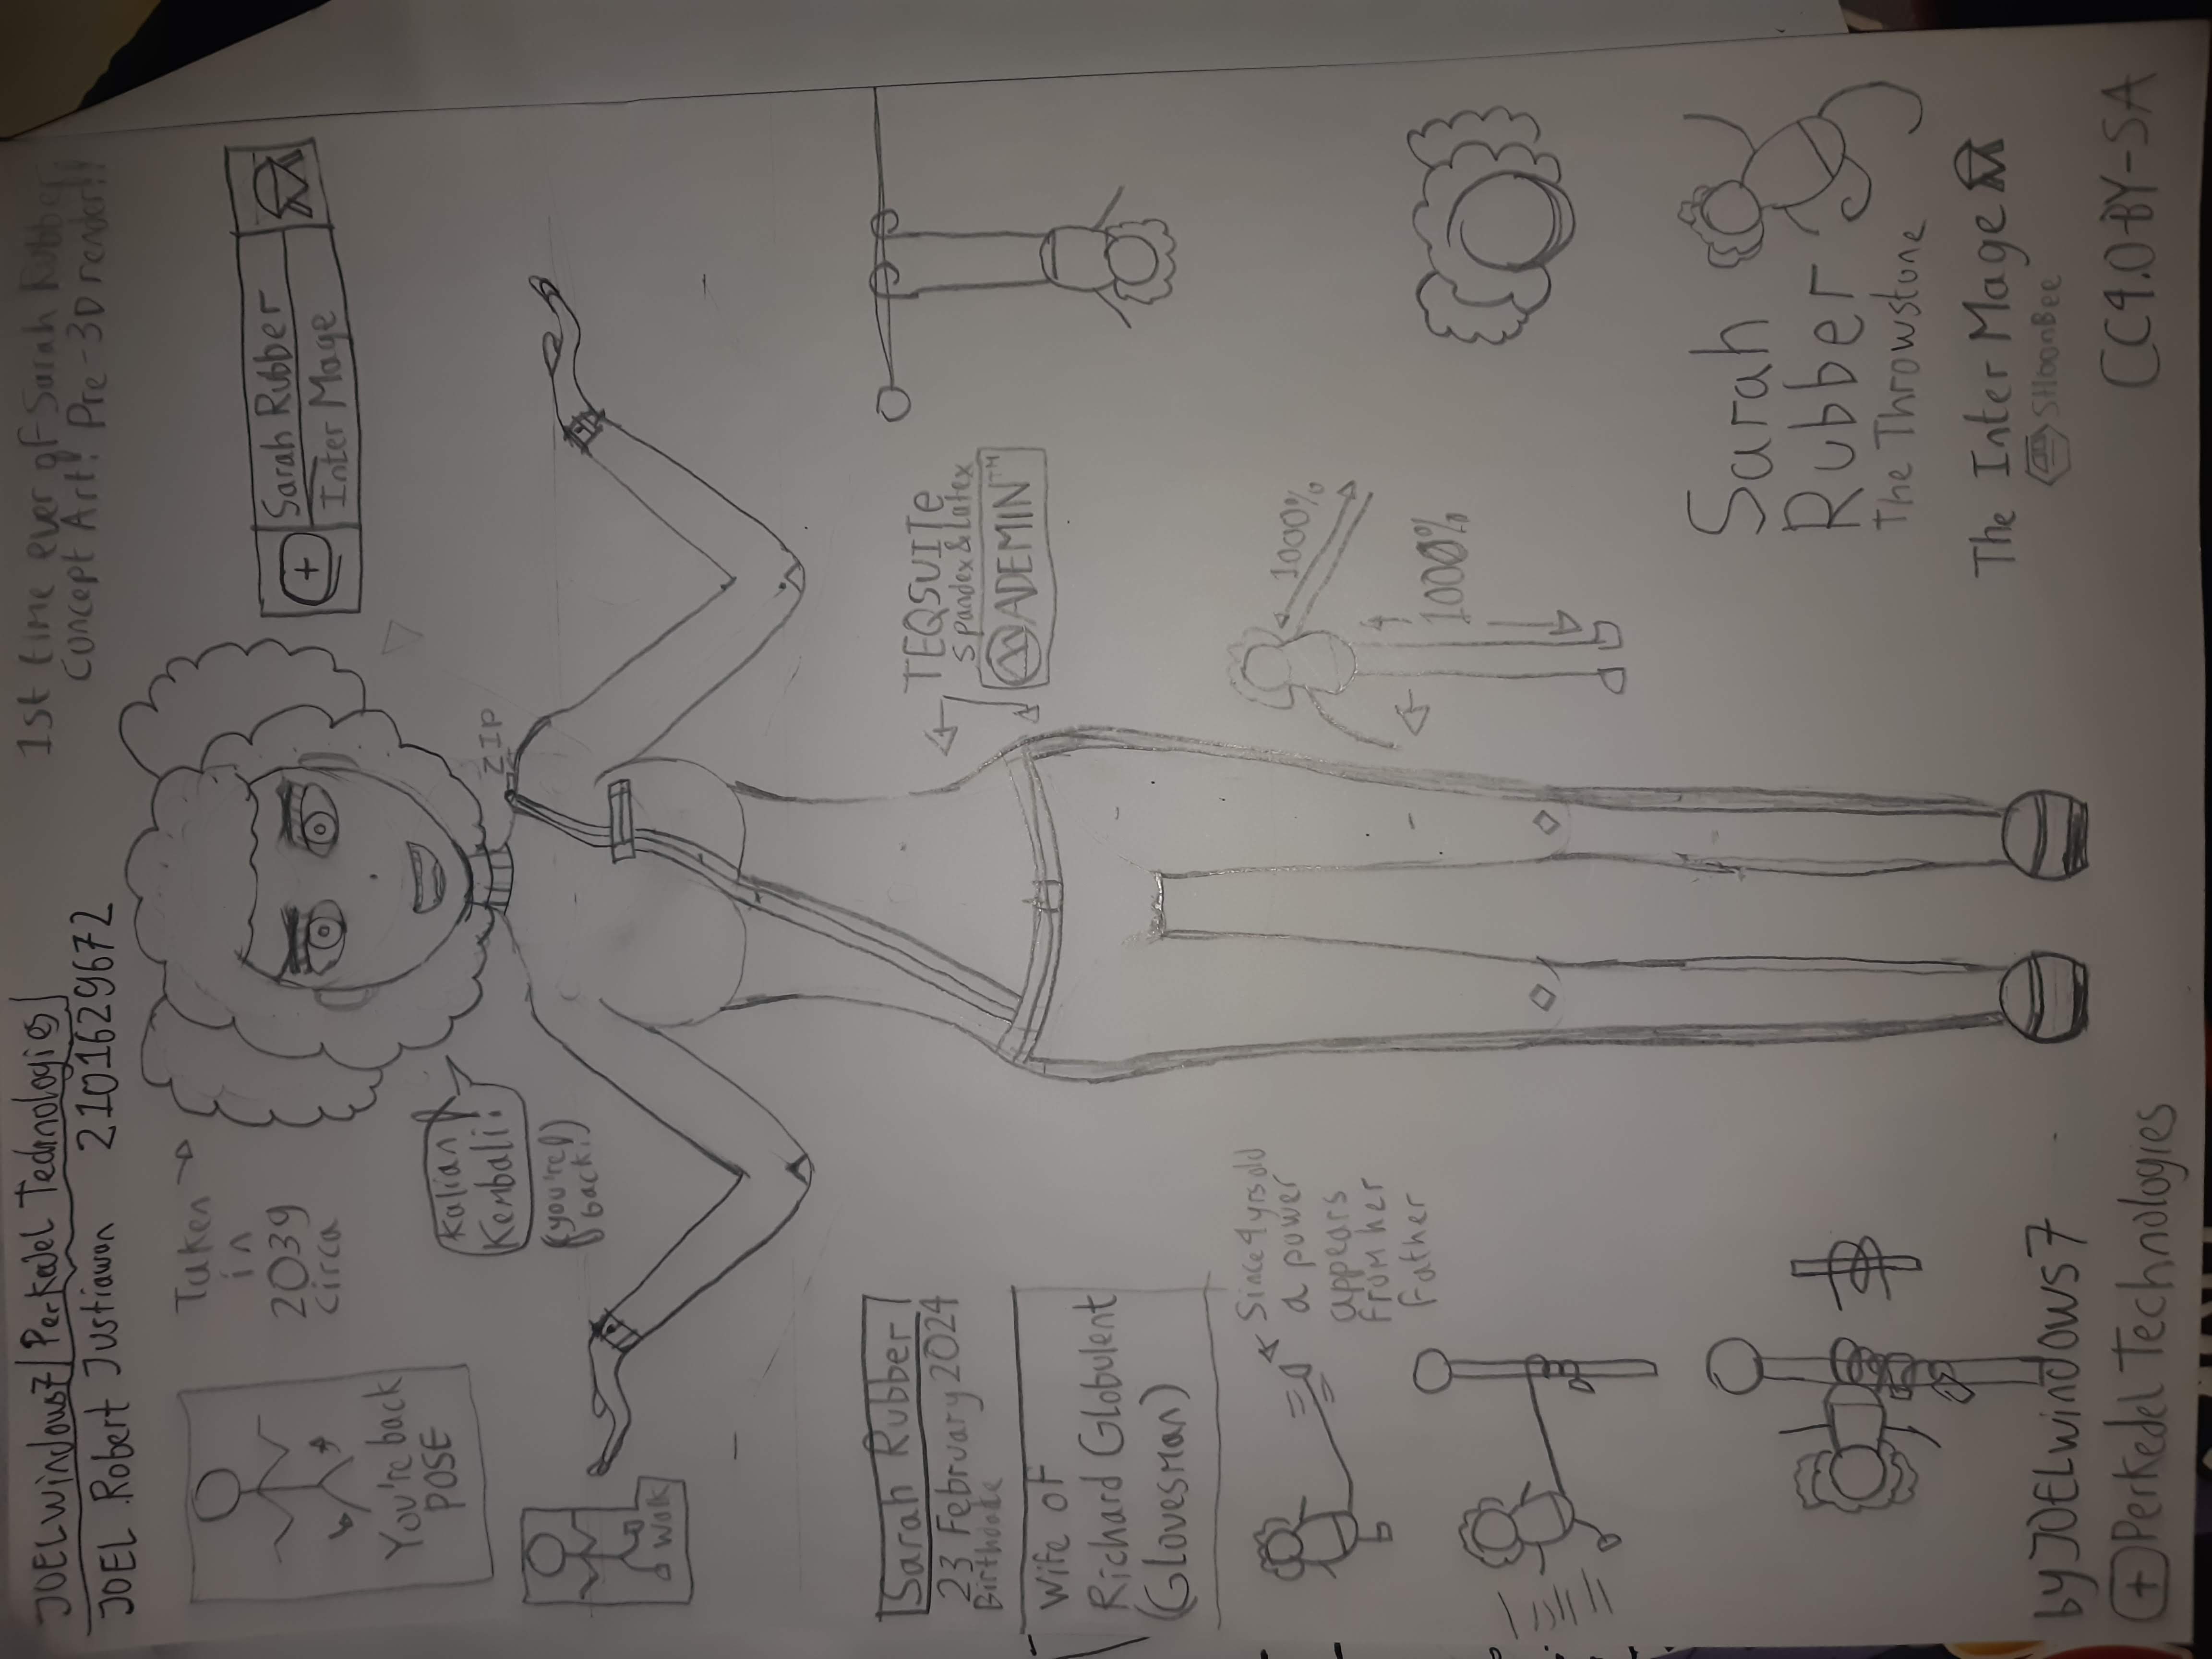 JOELwindows7 | Perkedel Technologies
JOEL Robert Justiawan 2101629672
1st time ever of Sarah Rubber
Concept Art! Pre-3D render!!
Taken
in
2039
circa
You're back
POSE
Sarah Rubber
Inter Mage
Kalian
Kembali!
(you're
back!)
ZIP
Walk
Sarah Rubber
23 February 2024
Birthdate
Wife of
Richard Globulent
(Glovesman)
TEQSUITe
Spandex & Latex
ADEMIN™
Since 4 yrs old
a power
appears
from her
father
1000%
1000%
Sarah
Rubber
the Throwstone
The Inter Mage
SHoonBee
by JOELwindows7
+ Perkedel Technologies
CC4.0-BY-SA